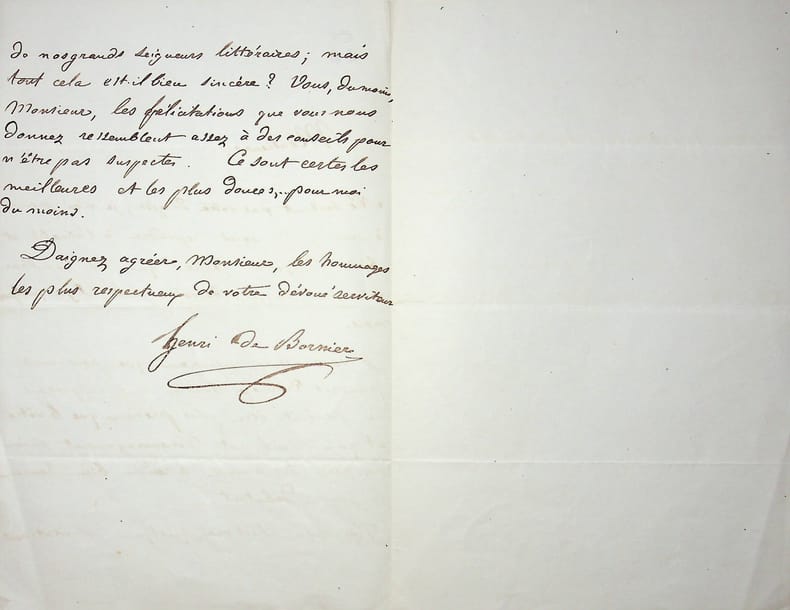 de nos grands seigneurs littéraires ; mais
tout cela est-il bien sincère ? Vous, du moins,
Monsieur, les félicitations que vous nous
donnez ressemblent assez à des conseils pour
n'être pas suspectes. Ce sont certes les
meilleures et les plus douces,.. pour moi
du moins.
Daignez agréer, Monsieur, les hommages
les plus respectueux de votre dévoué serviteur
Henri de Bornier